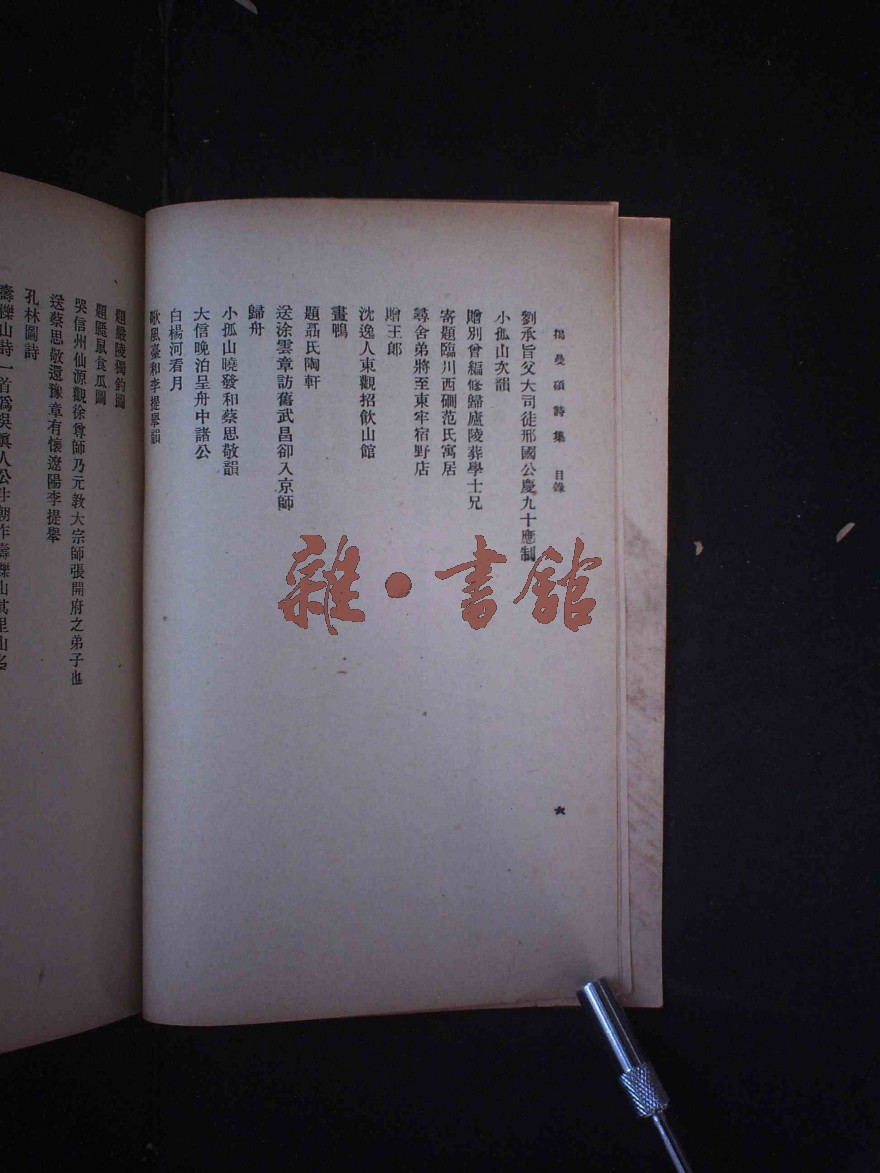 揭曼碩詩集 目錄
劉承旨父大司徒邢國公慶九十應制
小孤山次韻
贈別曾編修歸廬陵葬學士兄
寄題臨川西磵范氏寓居
尋舍弟將至東牢宿野店
贈王郎
沈逸人東觀招飲山館
畫鴨
題聶氏陶軒
送涂雲章訪舊武昌卻入京師
歸舟
小孤山曉發和蔡思敬韻
大信晚泊呈舟中諸公
白楊河看月
歌風臺和李提舉韻
六
題嚴陵獨釣圖
題鼴鼠食瓜圖
哭信州仙源觀徐尊師乃元教大宗師張開府之弟子也
送蔡思敬還豫章有懷遼陽李提舉
孔林圖詩
壽櫟山詩一首為吳真人公生朝作壽櫟山其里山名
雜·書館